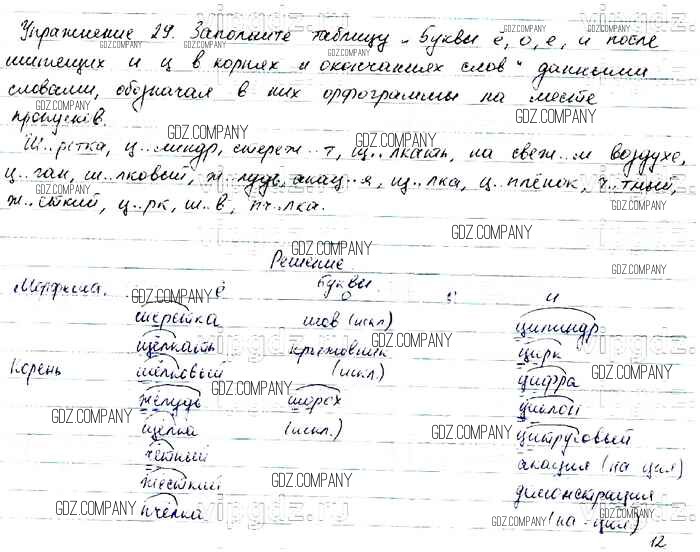 Упражнение 29. Заполните таблицу „Буквы ё, о, е, и после
шипящих и ц в корнях и окончаниях слов" данными
словами, обозначая в них орфограммы на месте
пропусков.
Ш..рстка, ц..линдр, стереж..т, щ..лкать, на свеж..м воздухе,
ц..ган, ш..лковый, ж..лудь, акац..я, щ..лка, ц..плёнок, ч..тный,
ж..сткий, ц..рк, ш..в, пч..лка.
Решение
Морфема. Буквы
ё о е и
шёрстка шов (искл) цилиндр
щёлкать крыжовник цирк
Корень шёлковый (искл.) цифра
жёлудь шорох
щёлка (искл.) цитрусовый
чётный акация (на ция)
жёсткий демонстрация
пчёлка (на -ция)
12
GDZ.COMPANY
vipgdz.ru